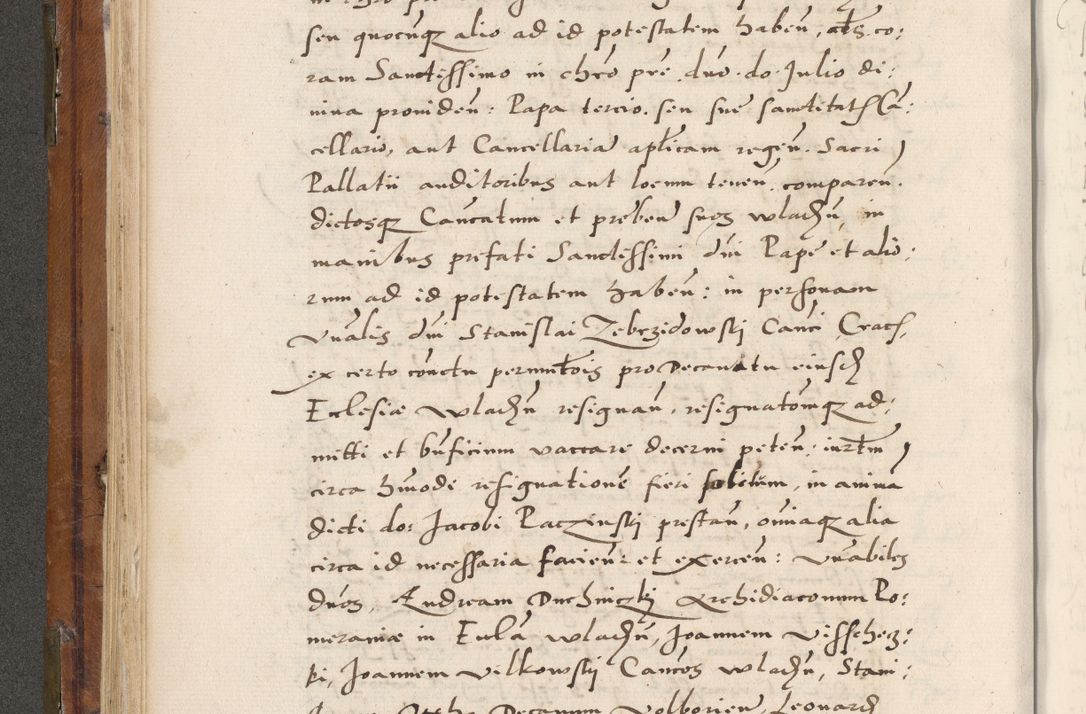 seu quocu̅q̷ alio ad id potestatem haben̅, abs. co:
ram Sanctissimo in chr̅o prē duo. do. Julio di:
uina prouiden̅: Papa tercio. seu sue sanctitat̅ Ca̅:
cellario, aut Cancellaria̅ apl̅icam regen̅. Sacri
Pallatii auditoribus aut locum tenen̅. comparen̅.
dictosq̷ Cano̅catum et preben̅ suos wladn̅, in
manibus prefati Sanctissimi dn̅i Pape et alio:
rum ad id potestatem haben̅: in personam
Vn̅alis dn̅i Stanislai Zebrzidowski Cano̅ci Crac̅,
ex certo co̅nctu permut̅ois pro Decanatu eiusd̅
Ecclesiæ wladn̅ resignan̅, resignato̅mq̷ ad:
mitti et bn̅ficium vaccare decerni peten̅, iurt̅m
circa hm̅odi resignatione̅ fieri solitum, in anima
dicti do: Jacobi Paczinski prestan̅, om̅iaq̷ alia
circa id necessaria facien̅: et exercen̅: Vn̅abiles
dn̅os, Andream Duchniczki Archidiaconum Po:
meraniæ in Eccl̅a wladn̅, Joannem Vissche:
ki, Joannem Vilkowski Cano̅cos wladn̅, Stani:
Decanum Volborien̅, Leonard̅